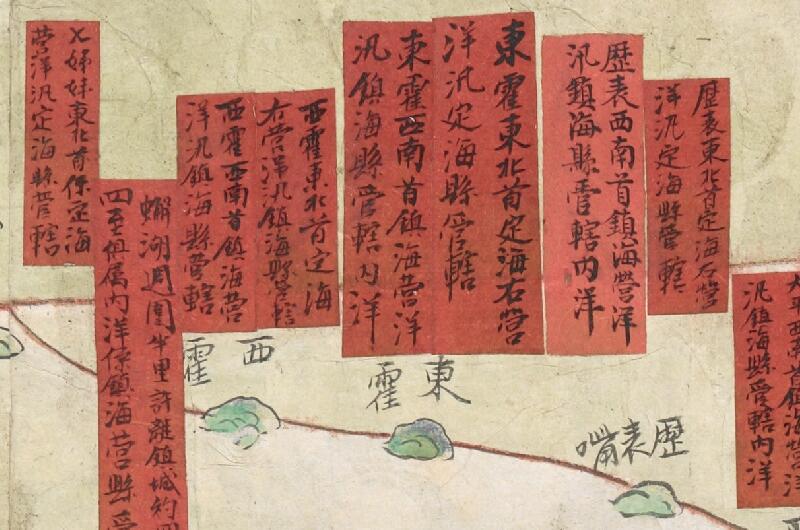 歷表東北首定海右營
洋汛定海縣管轄
歷表西南首鎮海營洋
汛鎮海縣管轄內洋
東霍東北首定海右營
洋汛定海縣管轄
東霍西南首鎮海營洋
汛鎮海縣管轄內洋
西霍東北首定海
右營洋汛鎮海縣管轄
西霍西南首鎮海營
洋汛鎮海縣管轄
七姊妹東北首係定海
營洋汛定海縣管轄
蠏湖週圍半里許離鎮城約
四至俱屬內洋係鎮海營縣
太平西南首鎮海營洋
汛鎮海縣管轄內洋
歷表嘴
東霍
西霍